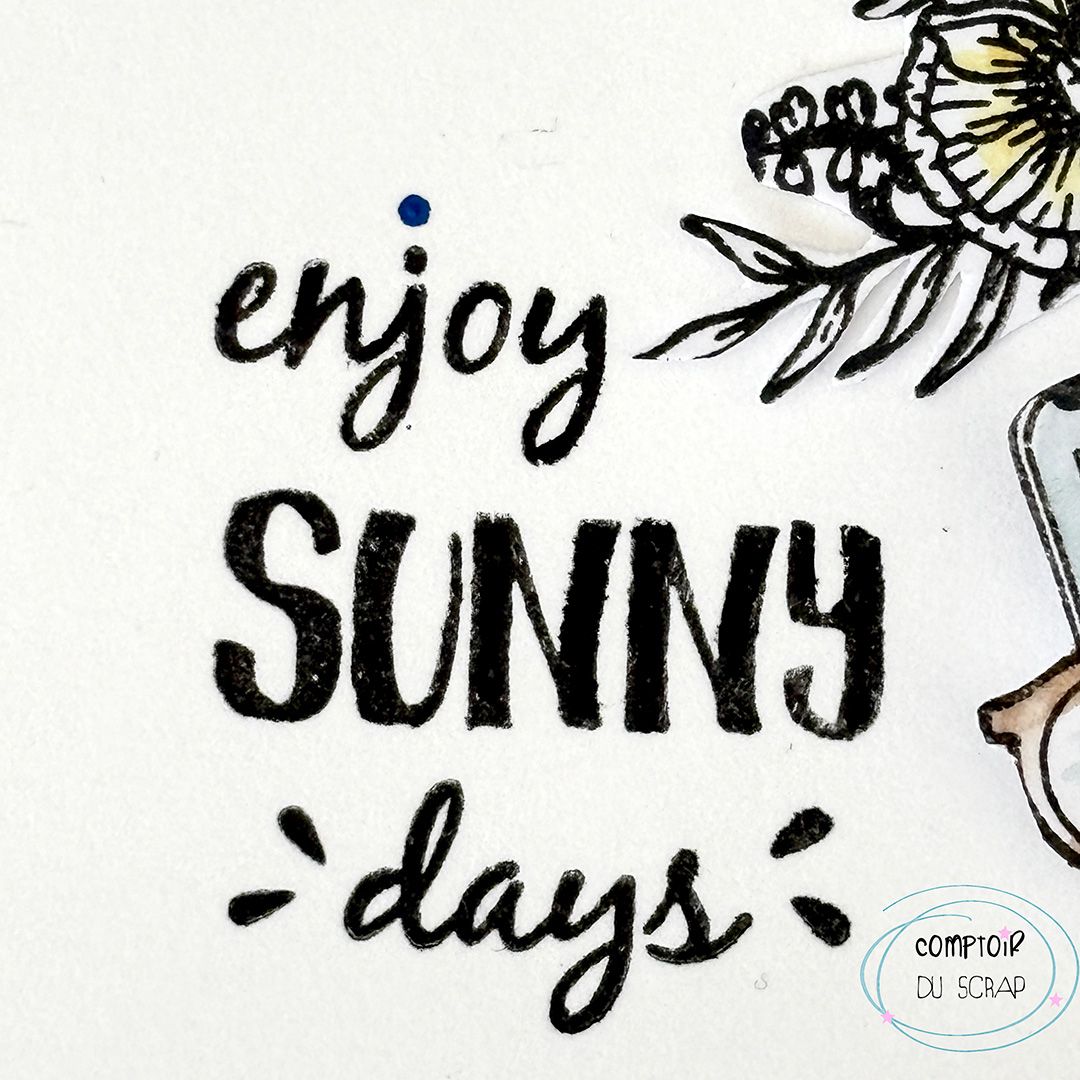 enjoy
SUNNY
days
COMPTOIR
DU SCRAP